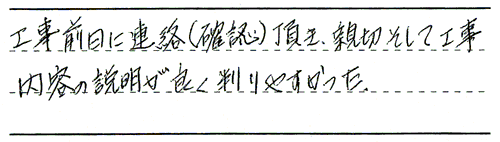 工事前日に連絡(確認)頂き、親切そして工事
内容の説明が良く判りやすかった。